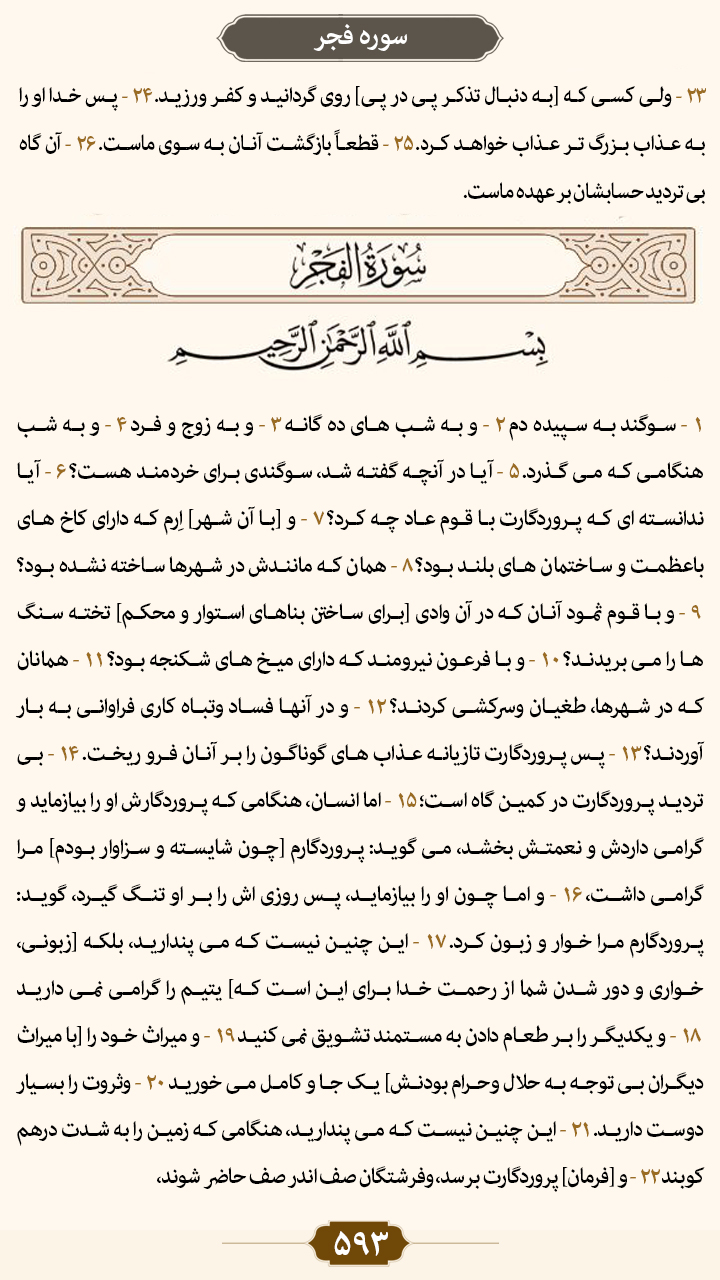 سوره فجر
۲۳ - ولی کسی که [به دنبال تذکر پی در پی] روی گردانید و کفر ورزید. ۲۴ - پس خدا او را
به عذاب بزرگ تر عذاب خواهد کرد. ۲۵ - قطعاً بازگشت آنان به سوی ماست. ۲۶ - آن گاه
بی تردید حسابشان بر عهده ماست.
سُورَةُ الفَجْرِ
بِسْمِ اللَّهِ الرَّحْمَٰنِ الرَّحِيمِ
۱ - سوگند به سپیده دم ۲ - و به شب های ده گانه ۳ - و به زوج و فرد ۴ - و به شب
هنگامی که می گذرد. ۵ - آیا در آنچه گفته شد، سوگندی برای خردمند هست؟ ۶ - آیا
ندانسته ای که پروردگارت با قوم عاد چه کرد؟ ۷ - و [با آن شهر] اِرم که دارای کاخ های
باعظمت و ساختمان های بلند بود؟ ۸ - همان که مانندش در شهرها ساخته نشده بود؟
۹ - و با قوم ثمود آنان که در آن وادی [برای ساختن بناهای استوار و محکم] تخته سنگ
ها را می بریدند؟ ۱۰ - و با فرعون نیرومند که دارای میخ های شکنجه بود؟ ۱۱ - همانان
که در شهرها، طغیان وسرکشی کردند؟ ۱۲ - و در آنها فساد وتباه کاری فراوانی به بار
آوردند؟ ۱۳ - پس پروردگارت تازیانه عذاب های گوناگون را بر آنان فرو ریخت. ۱۴ - بی
تردید پروردگارت در کمین گاه است؛ ۱۵ - اما انسان، هنگامی که پروردگارش او را بیازماید و
گرامی داردش و نعمتش بخشد، می گوید: پروردگارم [چون شایسته و سزاوار بودم] مرا
گرامی داشت، ۱۶ - و اما چون او را بیازماید، پس روزی اش را بر او تنگ گیرد، گوید:
پروردگارم مرا خوار و زبون کرد. ۱۷ - این چنین نیست که می پندارید، بلکه [زبونی،
خواری و دور شدن شما از رحمت خدا برای این است که] یتیم را گرامی نمی دارید
۱۸ - و یکدیگر را بر طعام دادن به مستمند تشویق نمی کنید ۱۹ - و میراث خود را [با میراث
دیگران بی توجه به حلال وحرام بودنش] یک جا و کامل می خورید ۲۰ - وثروت را بسیار
دوست دارید. ۲۱ - این چنین نیست که می پندارید، هنگامی که زمین را به شدت درهم
کوبند ۲۲ - و [فرمان] پروردگارت برسد، وفرشتگان صف اندر صف حاضر شوند،
۵۹۳